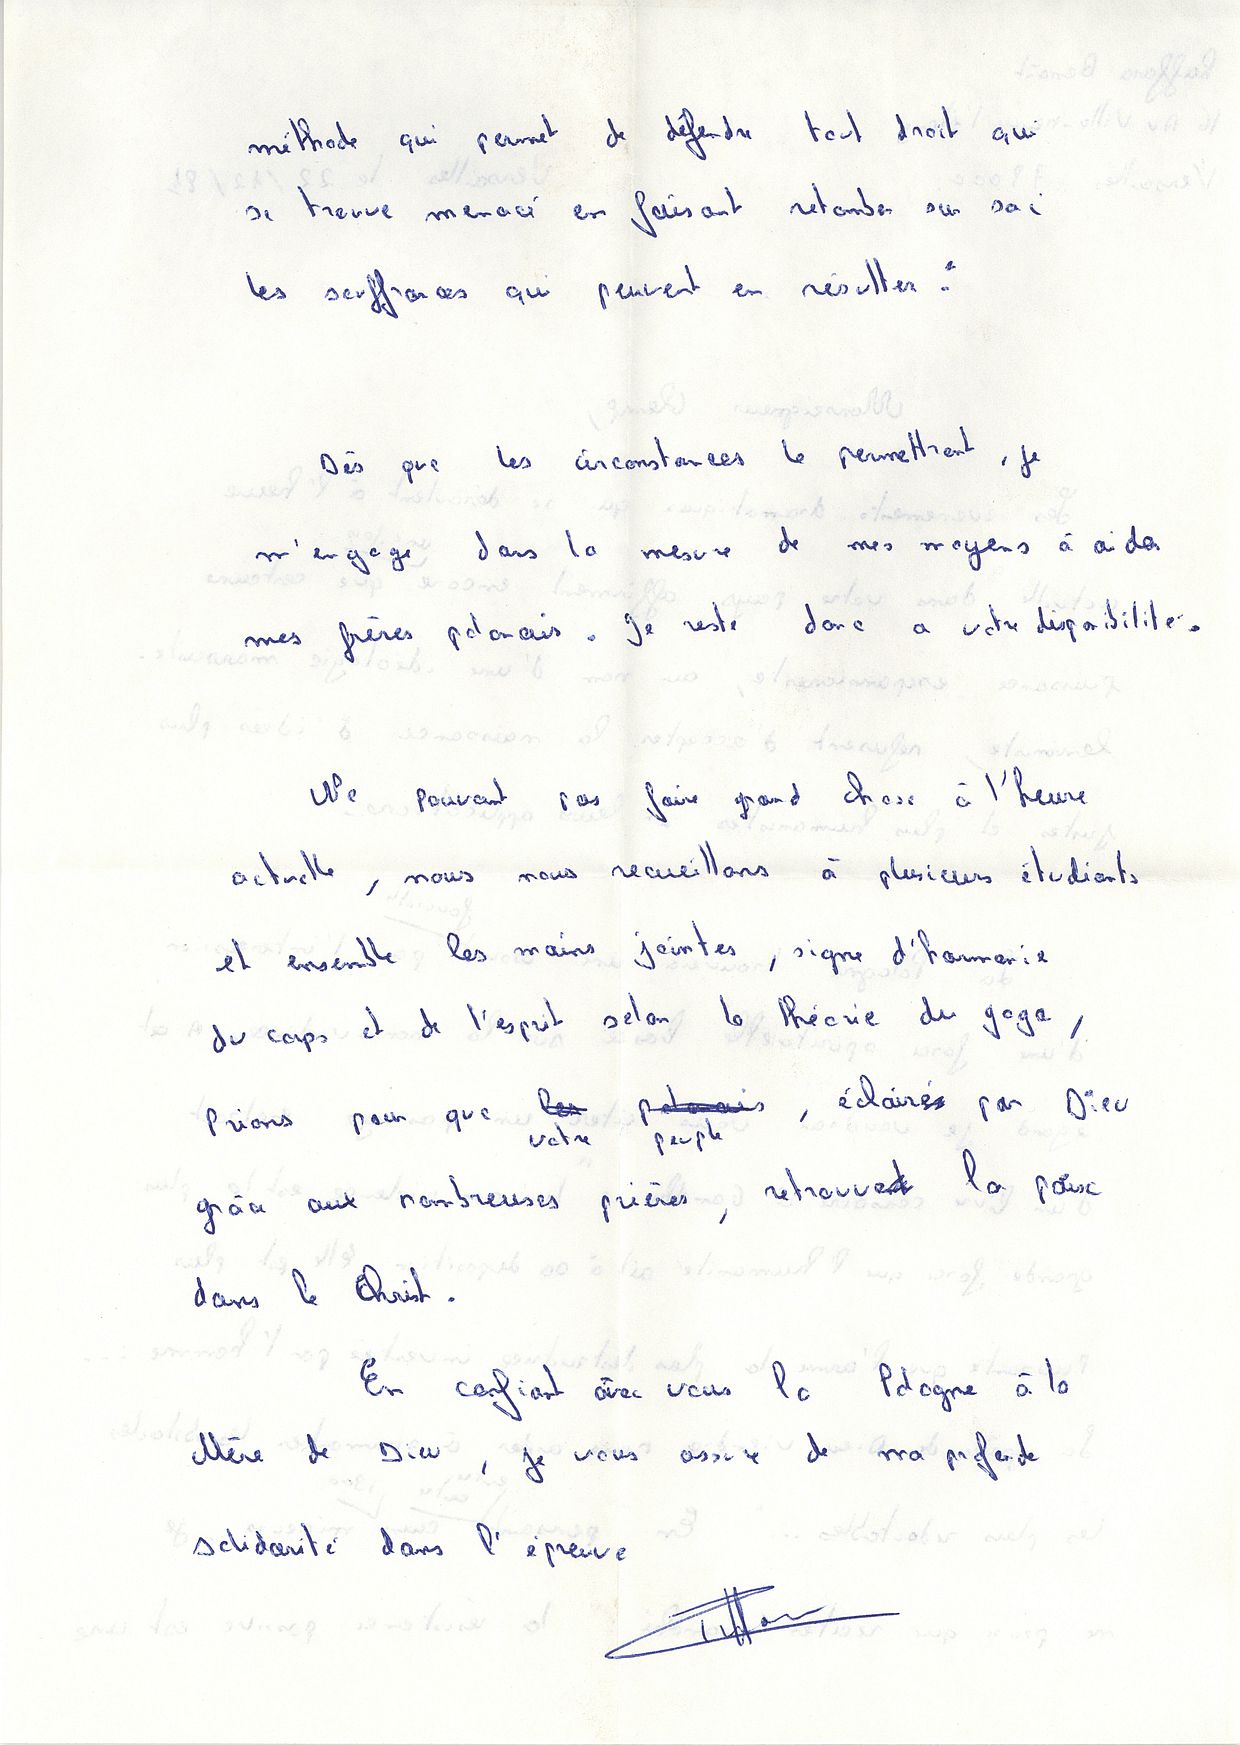 méthode qui permet de défendre tout droit qui
se trouve menacé en faisant retomber sur soi
les souffrances qui peuvent en résulter."
Dès que les circonstances le permettront, je
m'engage dans la mesure de mes moyens à aider
mes frères polonais. Je reste donc a votre disponibilité.
Ne pouvant pas faire grand chose à l'heure
actuelle, nous nous recueillons à plusieurs étudiants
et ensemble les mains jointes, signe d'harmonie
du corps et de l'esprit selon la théorie du yoga,
prions pour que les polonais, éclairés par Dieu
votre peuple
grâce aux nombreuses prières, retrouvent la paix
dans le Christ.
En confiant avec vous la Pologne à la
Mère de Dieu, je vous assure de ma profonde
solidarité dans l'épreuve